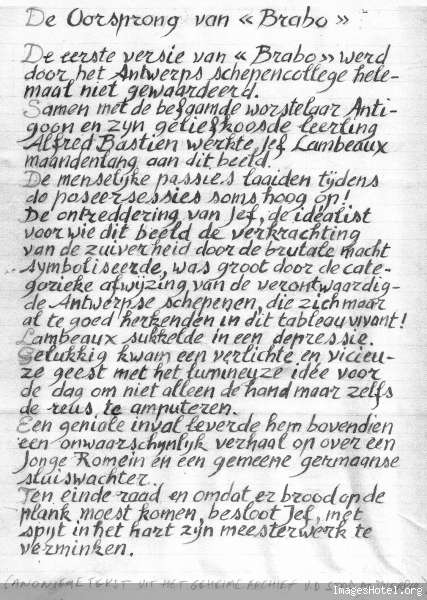 De Oorsprong van « Brabo »
De eerste versie van « Brabo » werd
door het Antwerps schepencollege hele-
maal niet gewaardeerd.
Samen met de befaamde worstelaar Anti-
goon en zyn geliefkoosde leerling
Alfred Bastien werkte Jef Lambeaux
maandenlang aan dit beeld,
De menselijke passies laaiden tijdens
de poseersessies soms hoog op!
De ontreddering van Jef, de idealist
voor wie dit beeld de verkrachting
van de zuiverheid door de brutale macht
symboliseerde, was groot door de cate-
gorieke afwijzing van de verontwaardig-
de Antwerpse schepenen, die zich maar
al te goed herkenden in dit tableau vivant!
Lambeaux sukkelde in een depressie.
Gelukkig kwam een verlichte en vicieu-
ze geest met het lumineuze idee voor
de dag om niet alleen de hand maar zelfs
de reus, te amputeren.
Een geniale inval leverde hem bovendien
een onwaarschynlyk verhaal op over een
Jonge Romein en een gemeene germaanse
sluiswachter.
Ten einde raad en omdat er brood op de
plank moest komen, besloot Jef, met
spijt in het hart zijn meesterwerk te
verminken.
TEKST UIT HET GEHEIME ARCHIEF V.D STAD
ImagesHotel.org